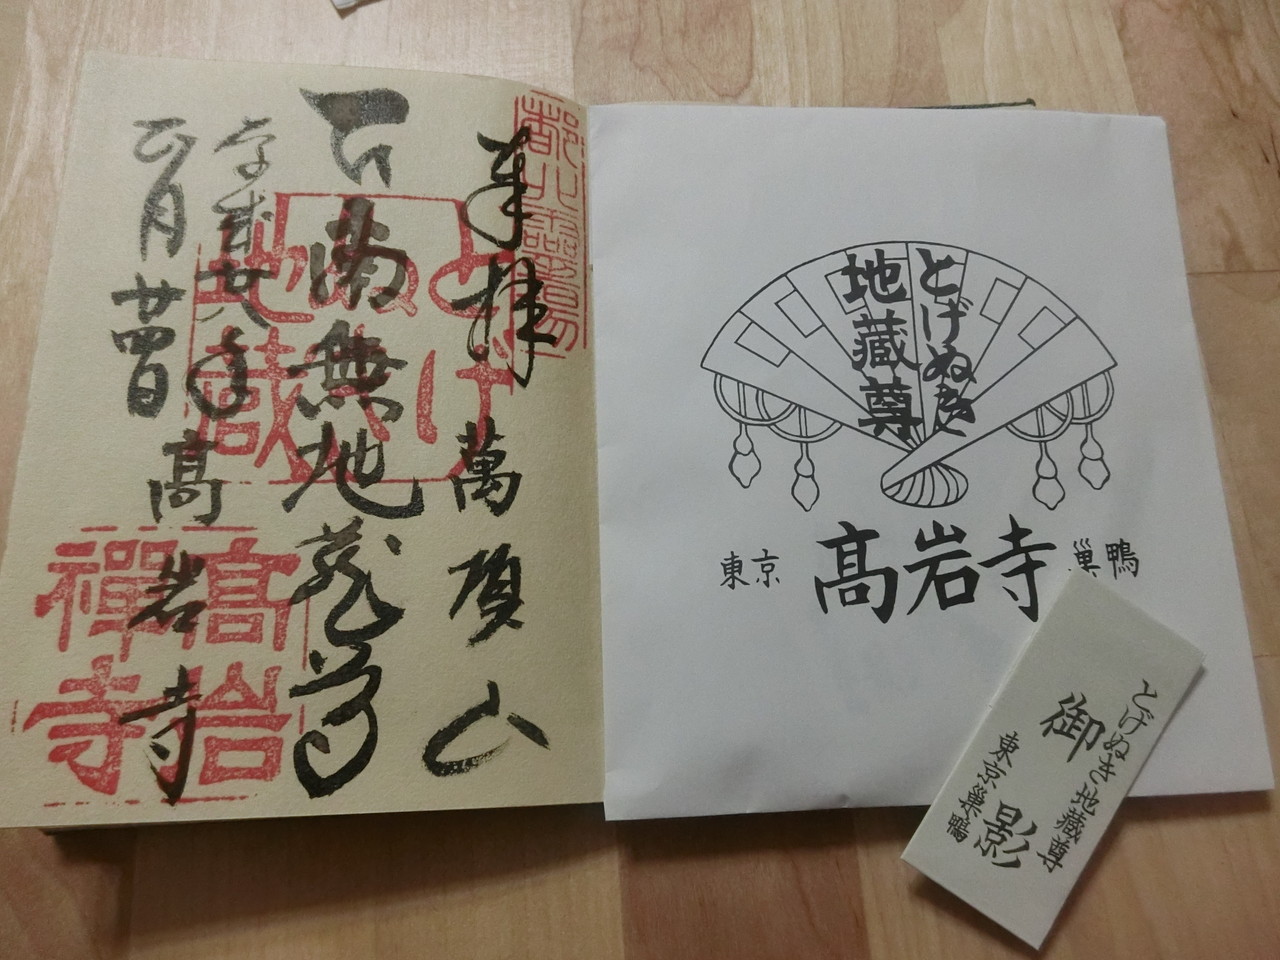 奉拝
萬頂山
南無地蔵尊
平成廿八年
正月廿四日
高岩寺
とげぬき
地蔵
高岩
禅寺
とげぬき
地蔵尊
東京 高岩寺 巣鴨
とげぬき地蔵尊
御影
東京巣鴨